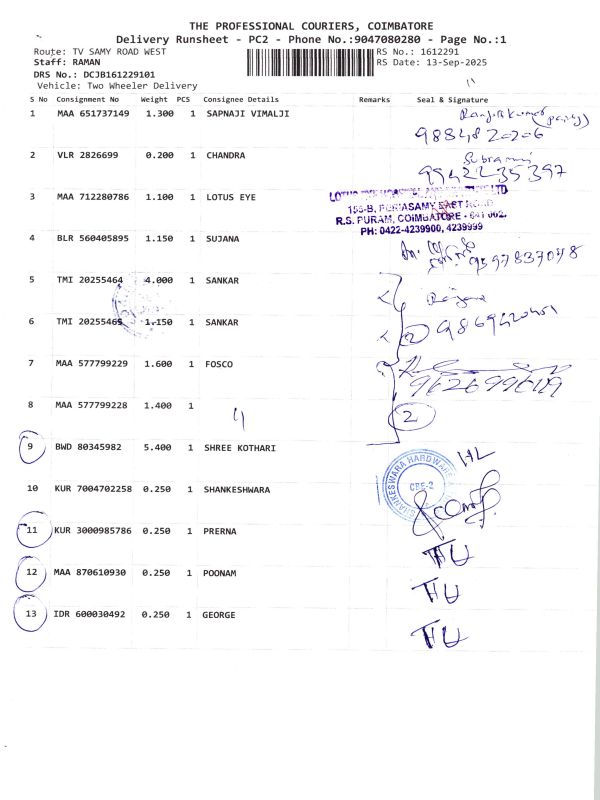 THE PROFESSIONAL COURIERS, COIMBATORE
Delivery Runsheet - PC2 - Phone No.:9047080280 - Page No.:1
Route: TV SAMY ROAD WEST RS No.: 1612291
Staff: RAMAN RS Date: 13-Sep-2025
DRS No.: DCJB161229101
Vehicle: Two Wheeler Delivery
S No Consignment No Weight PCS Consignee Details Remarks Seal & Signature
1 MAA 651737149 1.300 1 SAPNAJI VIMALJI
2 VLR 2826699 0.200 1 CHANDRA 9942235397
3 MAA 712280786 1.100 1 LOTUS EYE
R.S. PURAM, COIMBATORE - 641 002.
PH: 0422-4239900, 4239999
4 BLR 560405895 1.150 1 SUJANA
5 TMI 20255464 4.000 1 SANKAR
6 TMI 20255465 1.150 1 SANKAR 2
7 MAA 577799229 1.600 1 FOSCO
8 MAA 577799228 1.400 1 2
9 BWD 80345982 5.400 1 SHREE KOTHARI
10 KUR 7004702258 0.250 1 SHANKESHWARA
SHANKESWARA HARDWARE
CBE-2
11 KUR 3000985786 0.250 1 PRERNA
12 MAA 870610930 0.250 1 POONAM
13 IDR 600030492 0.250 1 GEORGE